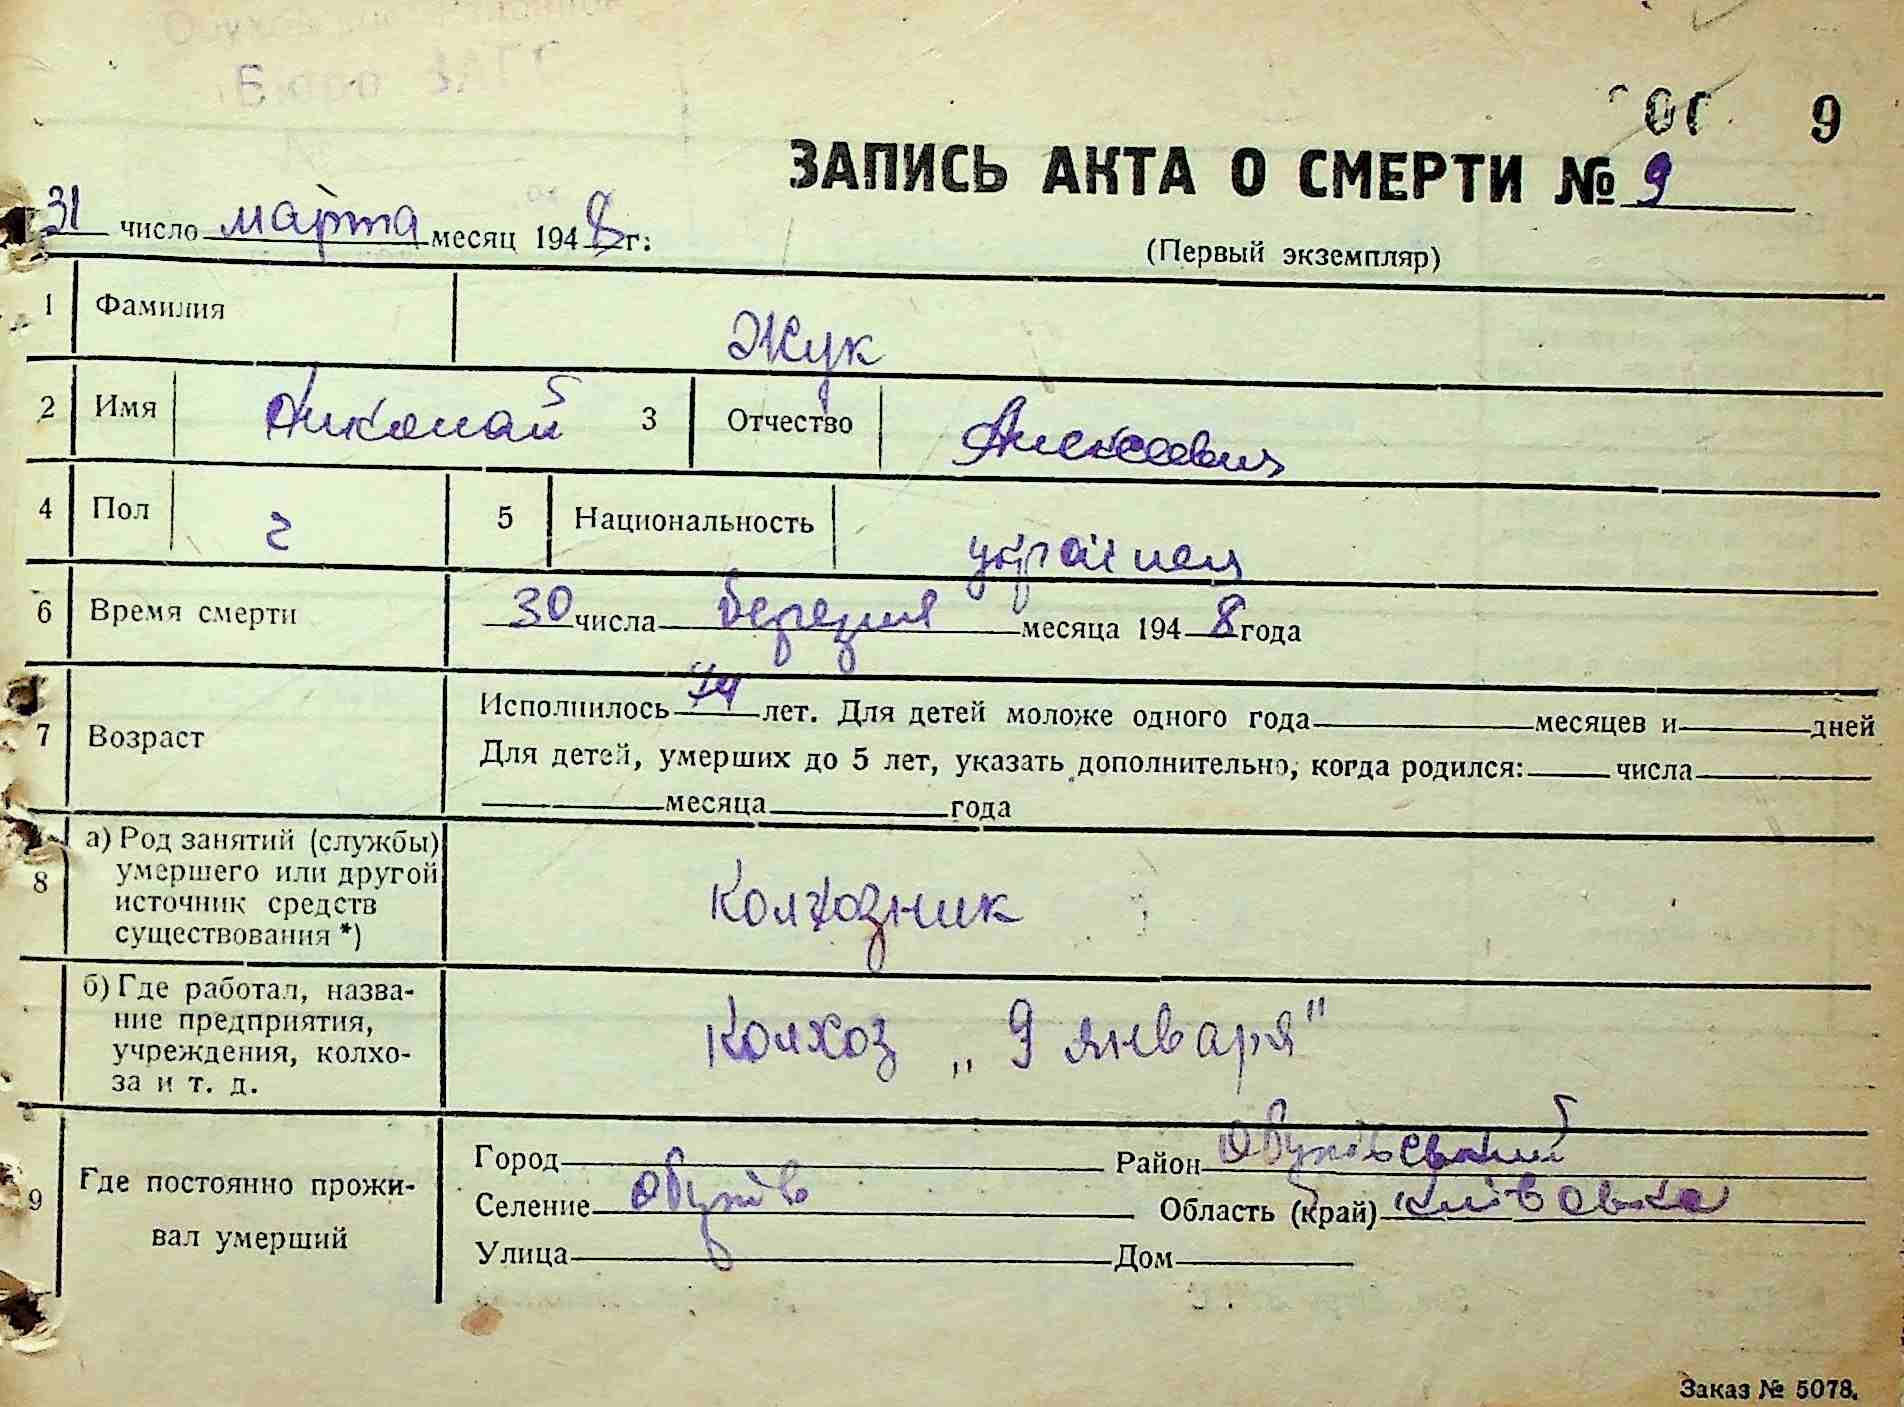 Бюро ЗАГС
9
ЗАПИСЬ АКТА О СМЕРТИ № 9
31 число марта месяц 1948 г.
(Первый экземпляр)
1 Фамилия Жук
2 Имя Николай 3 Отчество Алексеевич
4 Пол ч 5 Национальность українец
6 Время смерти 30 числа березня месяца 1948 года
7 Возраст
Исполнилось лет. Для детей моложе одного года месяцев и дней
Для детей, умерших до 5 лет, указать дополнительно, когда родился: числа
месяца года
8 а) Род занятий (службы)
умершего или другой
источник средств
существования *)
Колхозник
б) Где работал, назва-
ние предприятия,
учреждения, колхо-
за и т. д.
Колхоз „9 января"
9 Где постоянно прожи-
вал умерший
Город Район Обухівський
Селение Обухів Область (край) Київська
Улица Дом
Заказ № 5078.